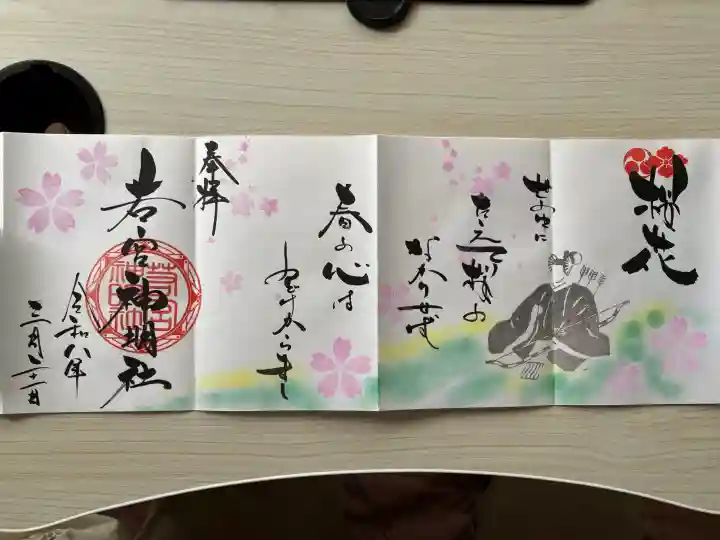 桜花
世の中に
たえて桜の
なかりせば
春の心は
のどけからまし
奉拝
若宮神明社
令和八年
三月二十一日